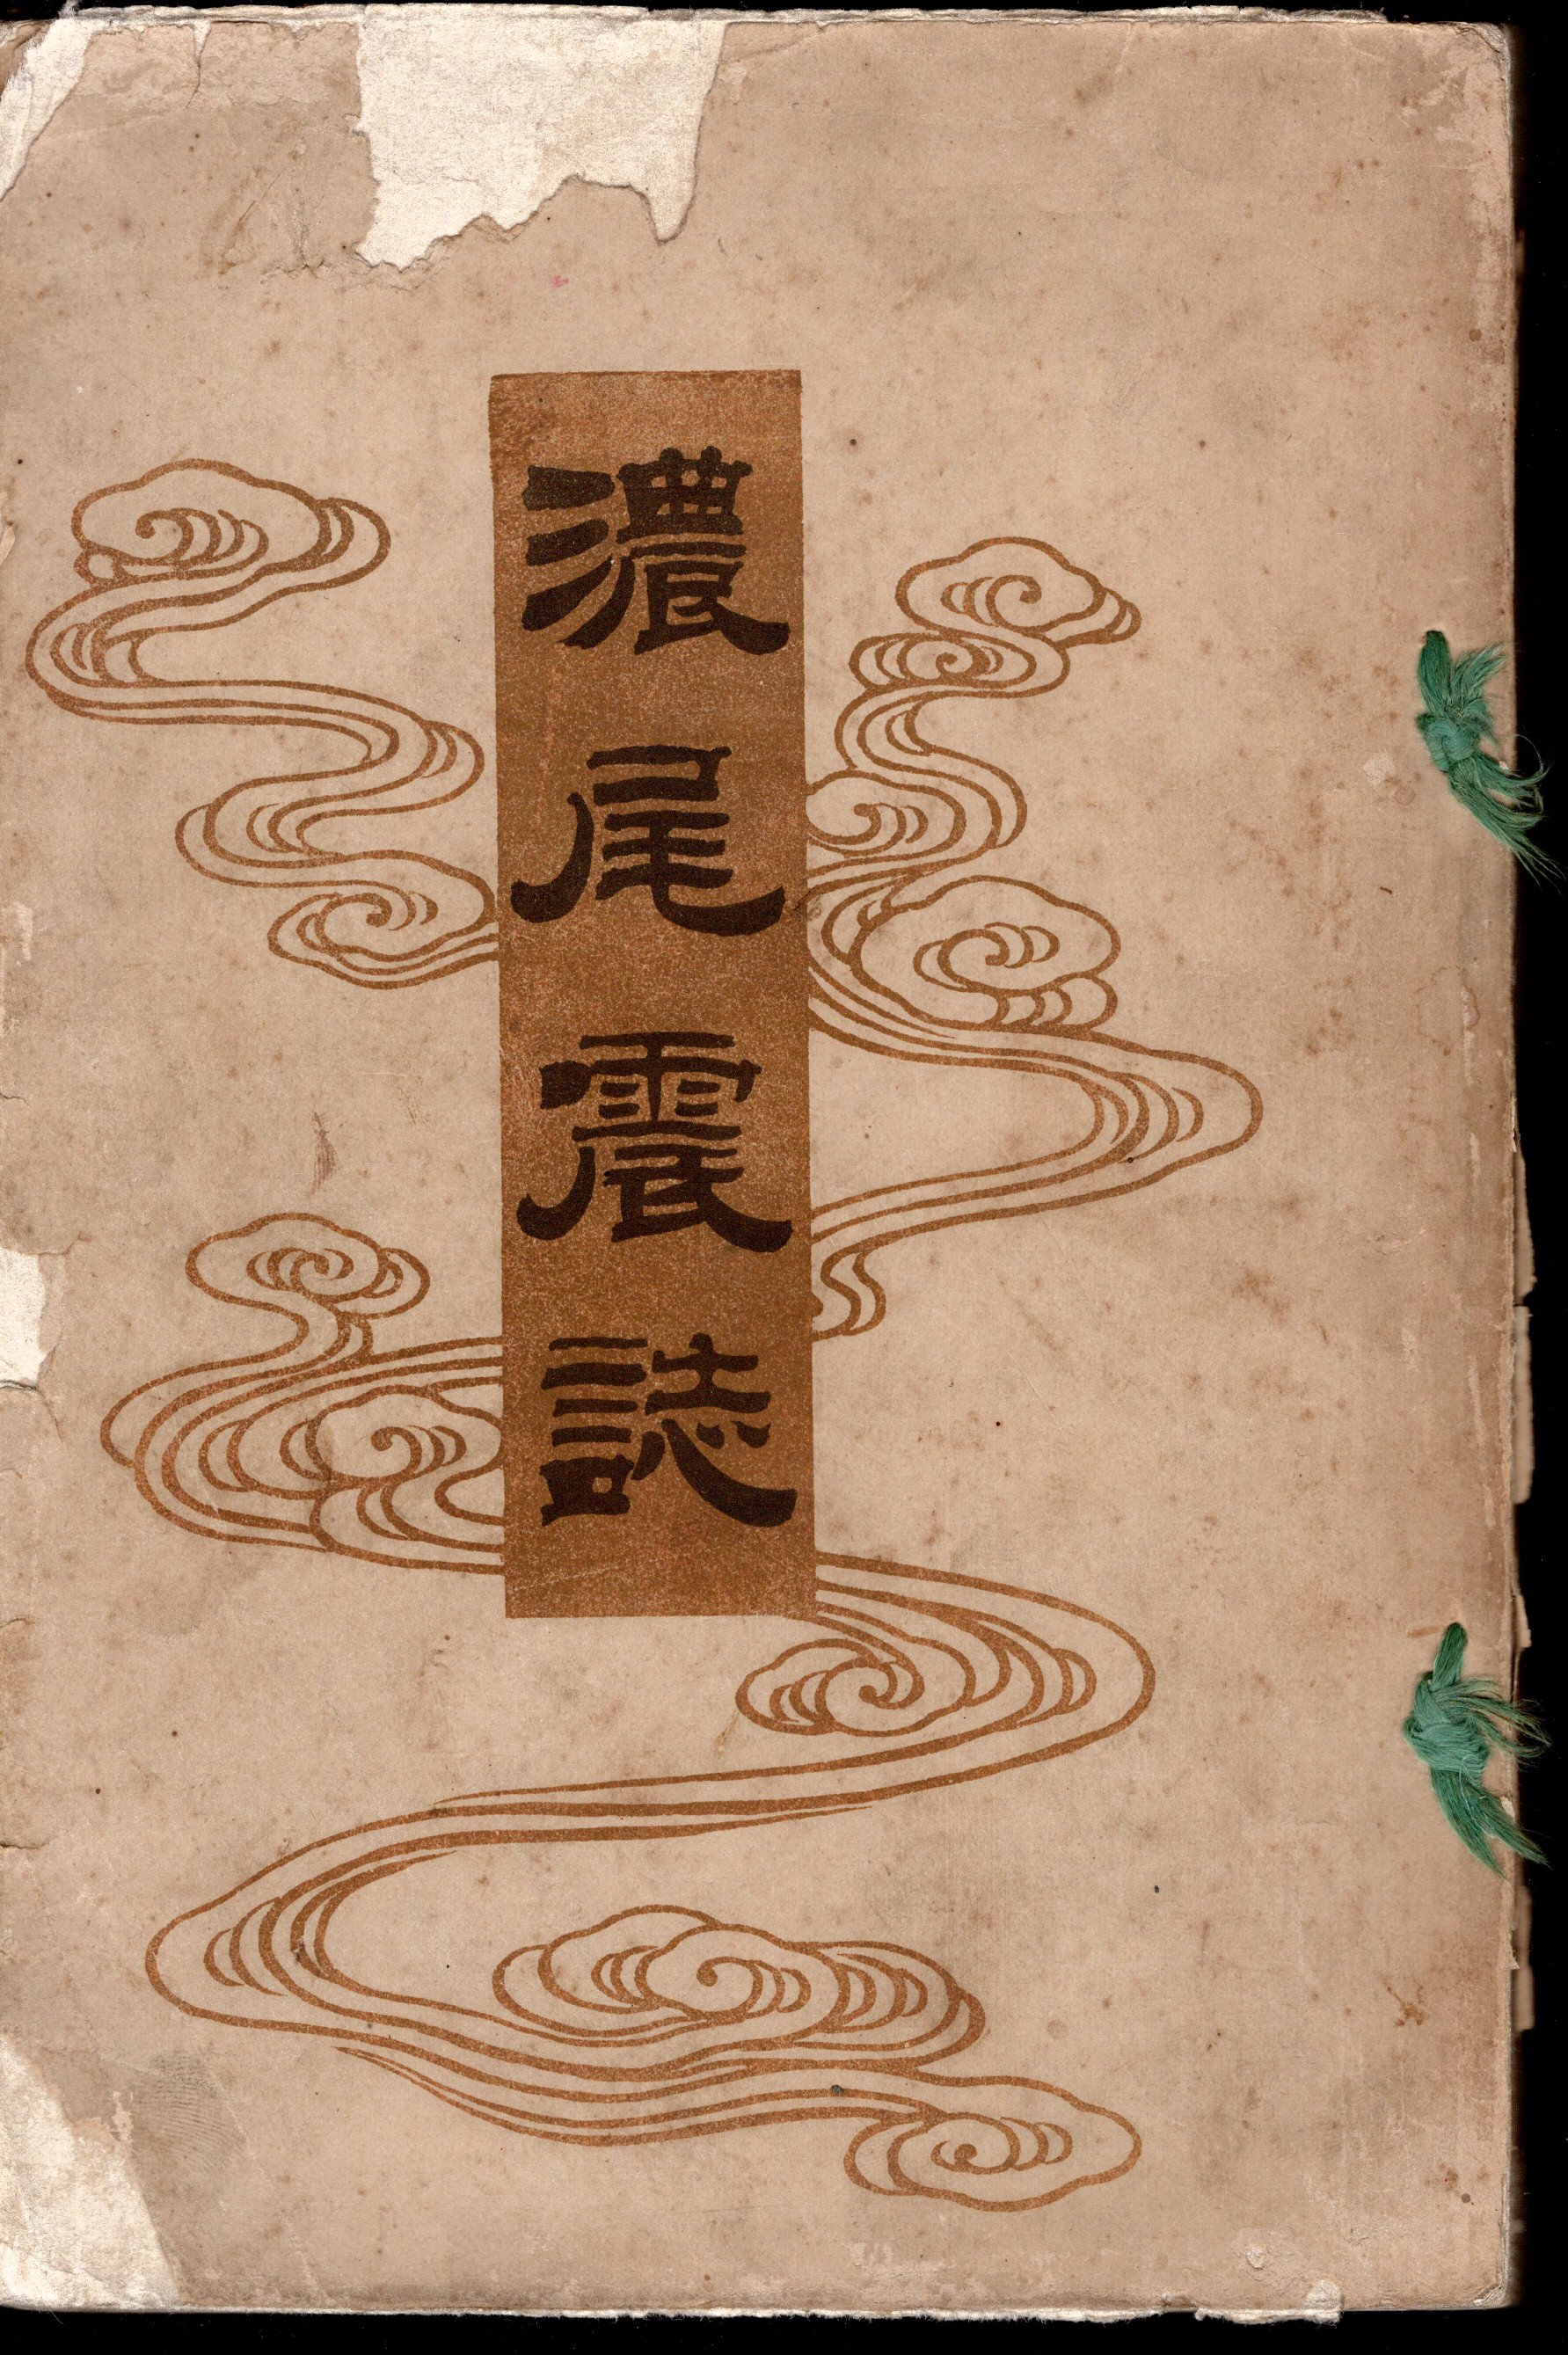 濃尾震誌